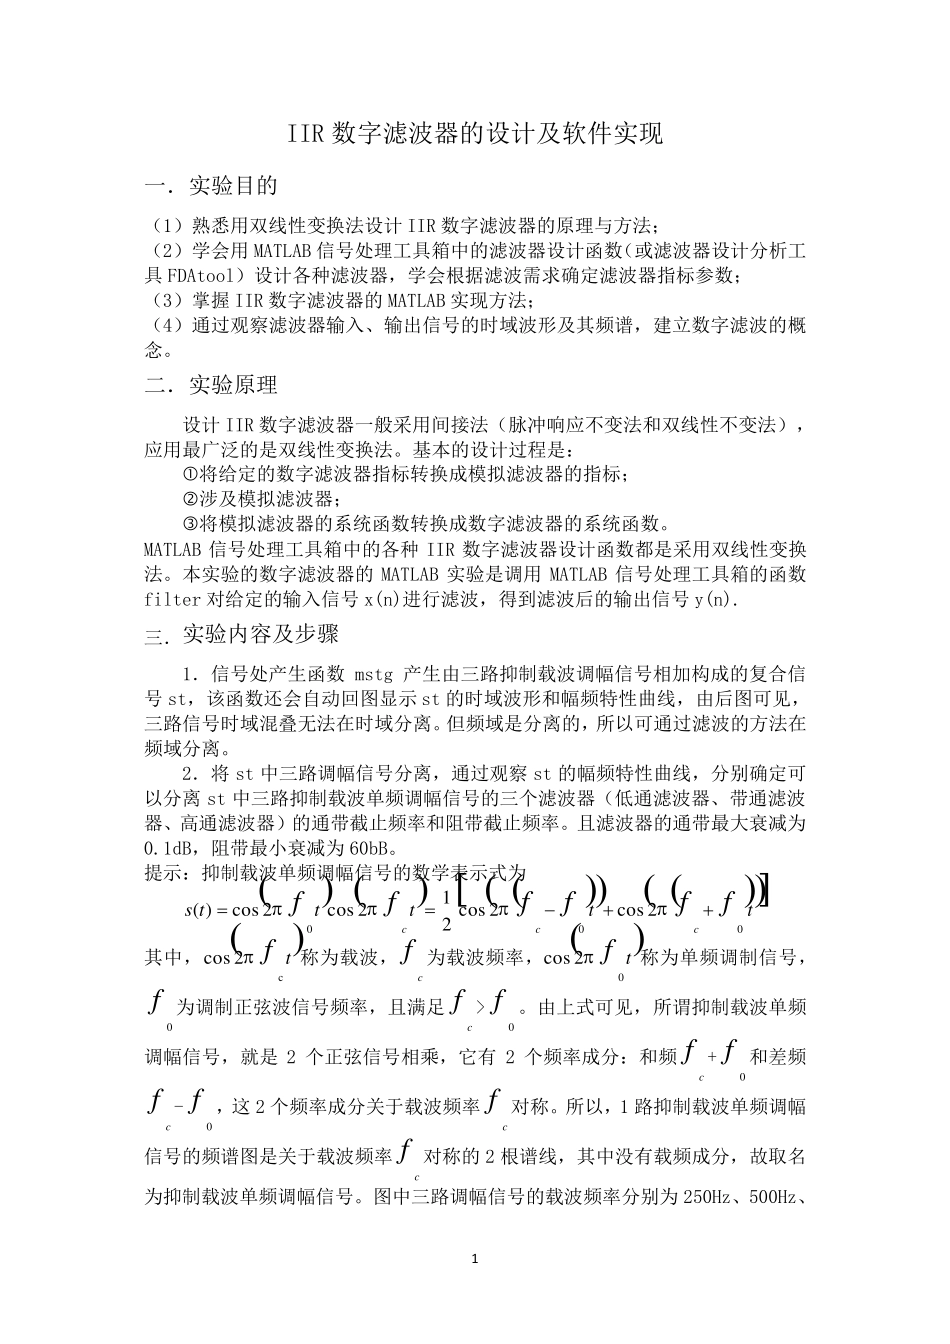 IIR 数字滤波器的设计及软件实现
一．实验目的
（1）熟悉用双线性变换法设计 IIR 数字滤波器的原理与方法；
（2）学会用 MATLAB 信号处理工具箱中的滤波器设计函数（或滤波器设计分析工
具 FDAtool）设计各种滤波器，学会根据滤波需求确定滤波器指标参数；
（3）掌握 IIR 数字滤波器的 MATLAB 实现方法；
（4）通过观察滤波器输入、输出信号的时域波形及其频谱，建立数字滤波的概
念。
二．实验原理
设计 IIR 数字滤波器一般采用间接法（脉冲响应不变法和双线性不变法），
应用最广泛的是双线性变换法。基本的设计过程是：
①将给定的数字滤波器指标转换成模拟滤波器的指标；
②涉及模拟滤波器；
③将模拟滤波器的系统函数转换成数字滤波器的系统函数。
MATLAB 信号处理工具箱中的各种 IIR 数字滤波器设计函数都是采用双线性变换
法。本实验的数字滤波器的 MATLAB 实验是调用 MATLAB 信号处理工具箱的函数
filter 对给定的输入信号 x(n)进行滤波，得到滤波后的输出信号 y(n).
三．实验内容及步骤
1．信号处产生函数 mstg 产生由三路抑制载波调幅信号相加构成的复合信
号 st，该函数还会自动回图显示 st 的时域波形和幅频特性曲线，由后图可见，
三路信号时域混叠无法在时域分离。但频域是分离的，所以可通过滤波的方法在
频域分离。
2．将 st 中三路调幅信号分离，通过观察 st 的幅频特性曲线，分别确定可
以分离 st 中三路抑制载波单频调幅信号的三个滤波器（低通滤波器、带通滤波
器、高通滤波器）的通带截止频率和阻带截止频率。且滤波器的通带最大衰减为
0.1dB，阻带最小衰减为 60bB。
提示：抑制载波单频调幅信号的数学表示式为
s(t) = cos(2π f_0 t) cos(2π f_c t) = 1/2 [cos(2π(f_c − f_0)t) + cos(2π(f_c + f_0)t)]
其中，cos(2π f_c t)称为载波，f_c 为载波频率，cos(2π f_0 t)称为单频调制信号，
f_0 为调制正弦波信号频率，且满足 f_c > f_0。由上式可见，所谓抑制载波单频
调幅信号，就是 2 个正弦信号相乘，它有 2 个频率成分：和频 f_c + f_0 和差频
f_c − f_0，这 2 个频率成分关于载波频率 f_c 对称。所以，1 路抑制载波单频调幅
信号的频谱图是关于载波频率 f_c 对称的 2 根谱线，其中没有载频成分，故取名
为抑制载波单频调幅信号。图中三路调幅信号的载波频率分别为 250Hz、500Hz、
1